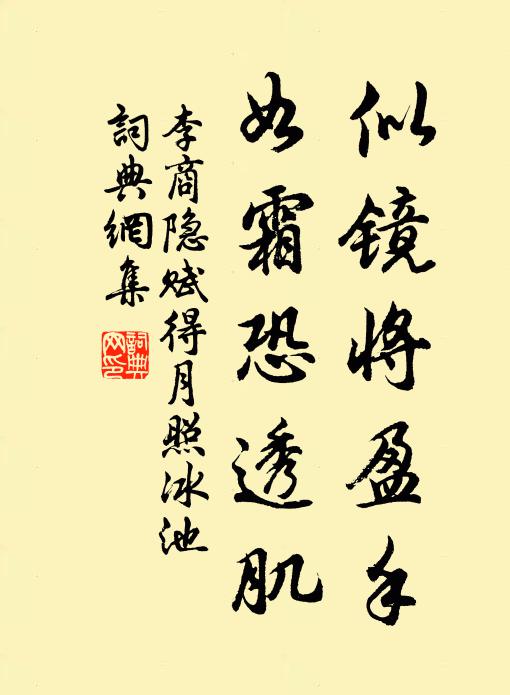 似镜将盈手
如霜恐透肌
李商隐赋得月照冰池
詞典網集
詞典網印